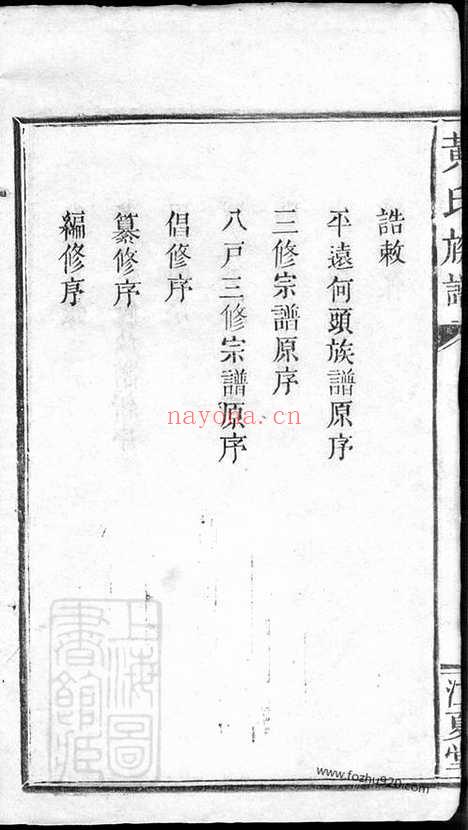 黃氏族譜
江夏堂
誥敕
平遠何頭族譜原序
三修宗譜原序
八戸三修宗譜原序
倡修序
纂修序
編修序
上海圖書館藏
nayona.cn
www.fozhu920.com